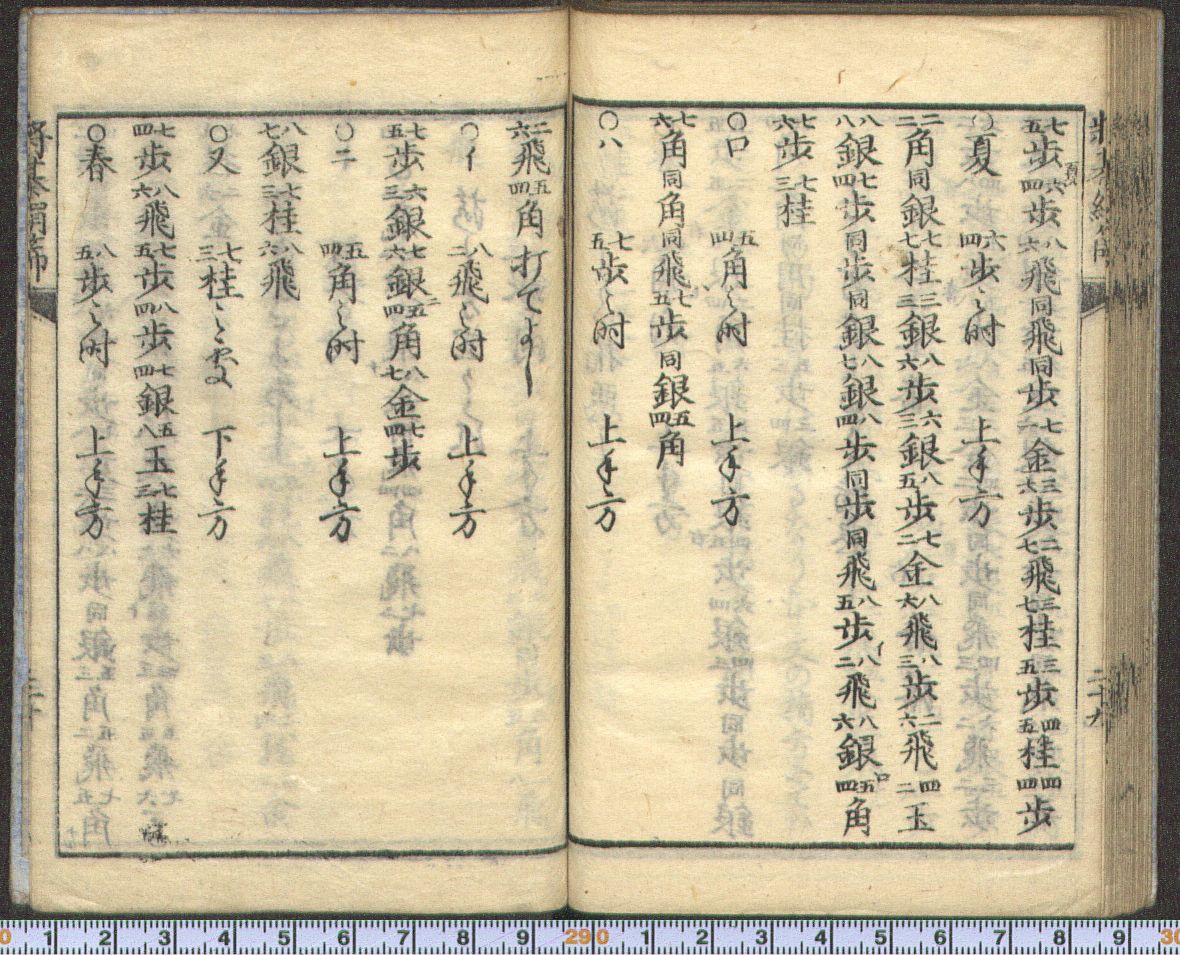 将棊絹篩 二十九
七五歩六四歩夏八六飛同飛同歩七二金三六歩二七飛三七桂三五歩四五桂四四歩
〇夏 六四歩之時 上手方
二二角同銀七七桂三三銀八六歩六三銀八五歩七二金八六飛八三歩二六飛四二玉
八八銀七四歩同歩同銀八七銀八四歩同歩同飛八五歩イ八二飛八六銀ロ五四角
七六歩七三桂
〇ロ 五四角之時 上手方
七六角同角同飛七五歩同銀五四角
〇ハ 七五歩之時 上手方
二六飛五四角打てよし
〇イ 八二飛之時 上手方
七五歩六三銀七六銀五四角ニ八七金七四歩
〇ニ 五四角之時 上手方
八七銀七三桂八六飛
〇又 七三桂之処 下手方
七四歩八六飛七五歩八四歩七四銀五八玉七三桂
〇春 八五歩之時 上手方
将棊絹篩 三十